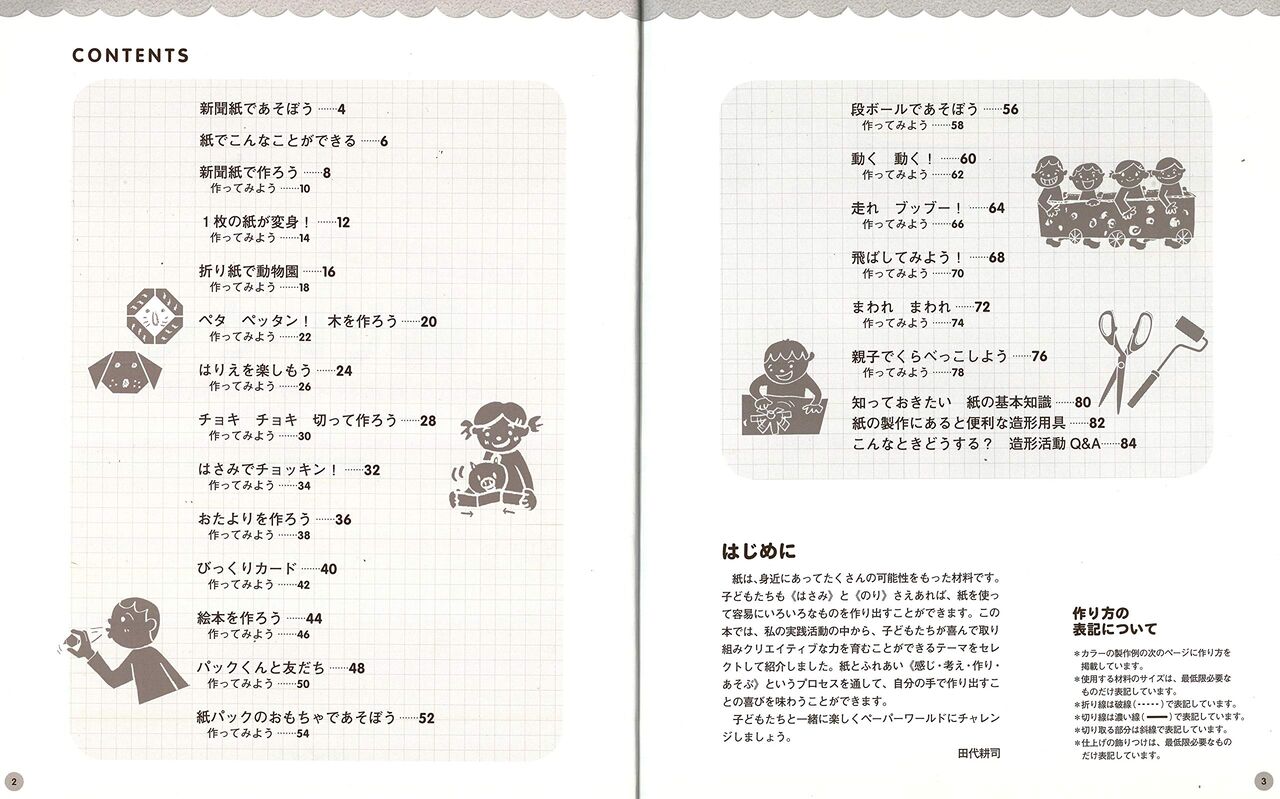 CONTENTS
新聞紙であそぼう……4
紙でこんなことができる……6
新聞紙で作ろう……8
作ってみよう……10
１枚の紙が変身！……12
作ってみよう……14
折り紙で動物園……16
作ってみよう……18
ペタ　ペッタン！　木を作ろう……20
作ってみよう……22
はりえを楽しもう……24
作ってみよう……26
チョキ　チョキ　切って作ろう……28
作ってみよう……30
はさみでチョッキン！……32
作ってみよう……34
おたよりを作ろう……36
作ってみよう……38
びっくりカード……40
作ってみよう……42
絵本を作ろう……44
作ってみよう……46
パックくんと友だち……48
作ってみよう……50
紙パックのおもちゃであそぼう……52
作ってみよう……54
2
段ボールであそぼう……56
作ってみよう……58
動く　動く！……60
作ってみよう……62
走れ　ブッブー！……64
作ってみよう……66
飛ばしてみよう！……68
作ってみよう……70
まわれ　まわれ……72
作ってみよう……74
親子でくらべっこしよう……76
作ってみよう……78
知っておきたい　紙の基本知識……80
紙の製作にあると便利な造形用具……82
こんなときどうする？　造形活動Q&A……84
はじめに
紙は、身近にあってたくさんの可能性をもった材料です。
子どもたちも《はさみ》と《のり》さえあれば、紙を使っ
て容易にいろいろなものを作り出すことができます。この
本では、私の実践活動の中から、子どもたちが喜んで取り
組みクリエイティブな力を育むことができるテーマをセレ
クトして紹介しました。紙とふれあい《感じ・考え・作り・
あそぶ》というプロセスを通して、自分の手で作り出すこ
との喜びを味わうことができます。
子どもたちと一緒に楽しくペーパーワールドにチャレン
ジしましょう。
田代耕司
作り方の
表記について
＊カラーの製作例の次のページに作り方を
掲載しています。
＊使用する材料のサイズは、最低限必要な
ものだけ表記しています。
＊折り線は破線(-----)で表記しています。
＊切り線は濃い線(━━)で表記しています。
＊切り取る部分は斜線で表記しています。
＊仕上げの飾りつけは、最低限必要なもの
だけ表記しています。
3